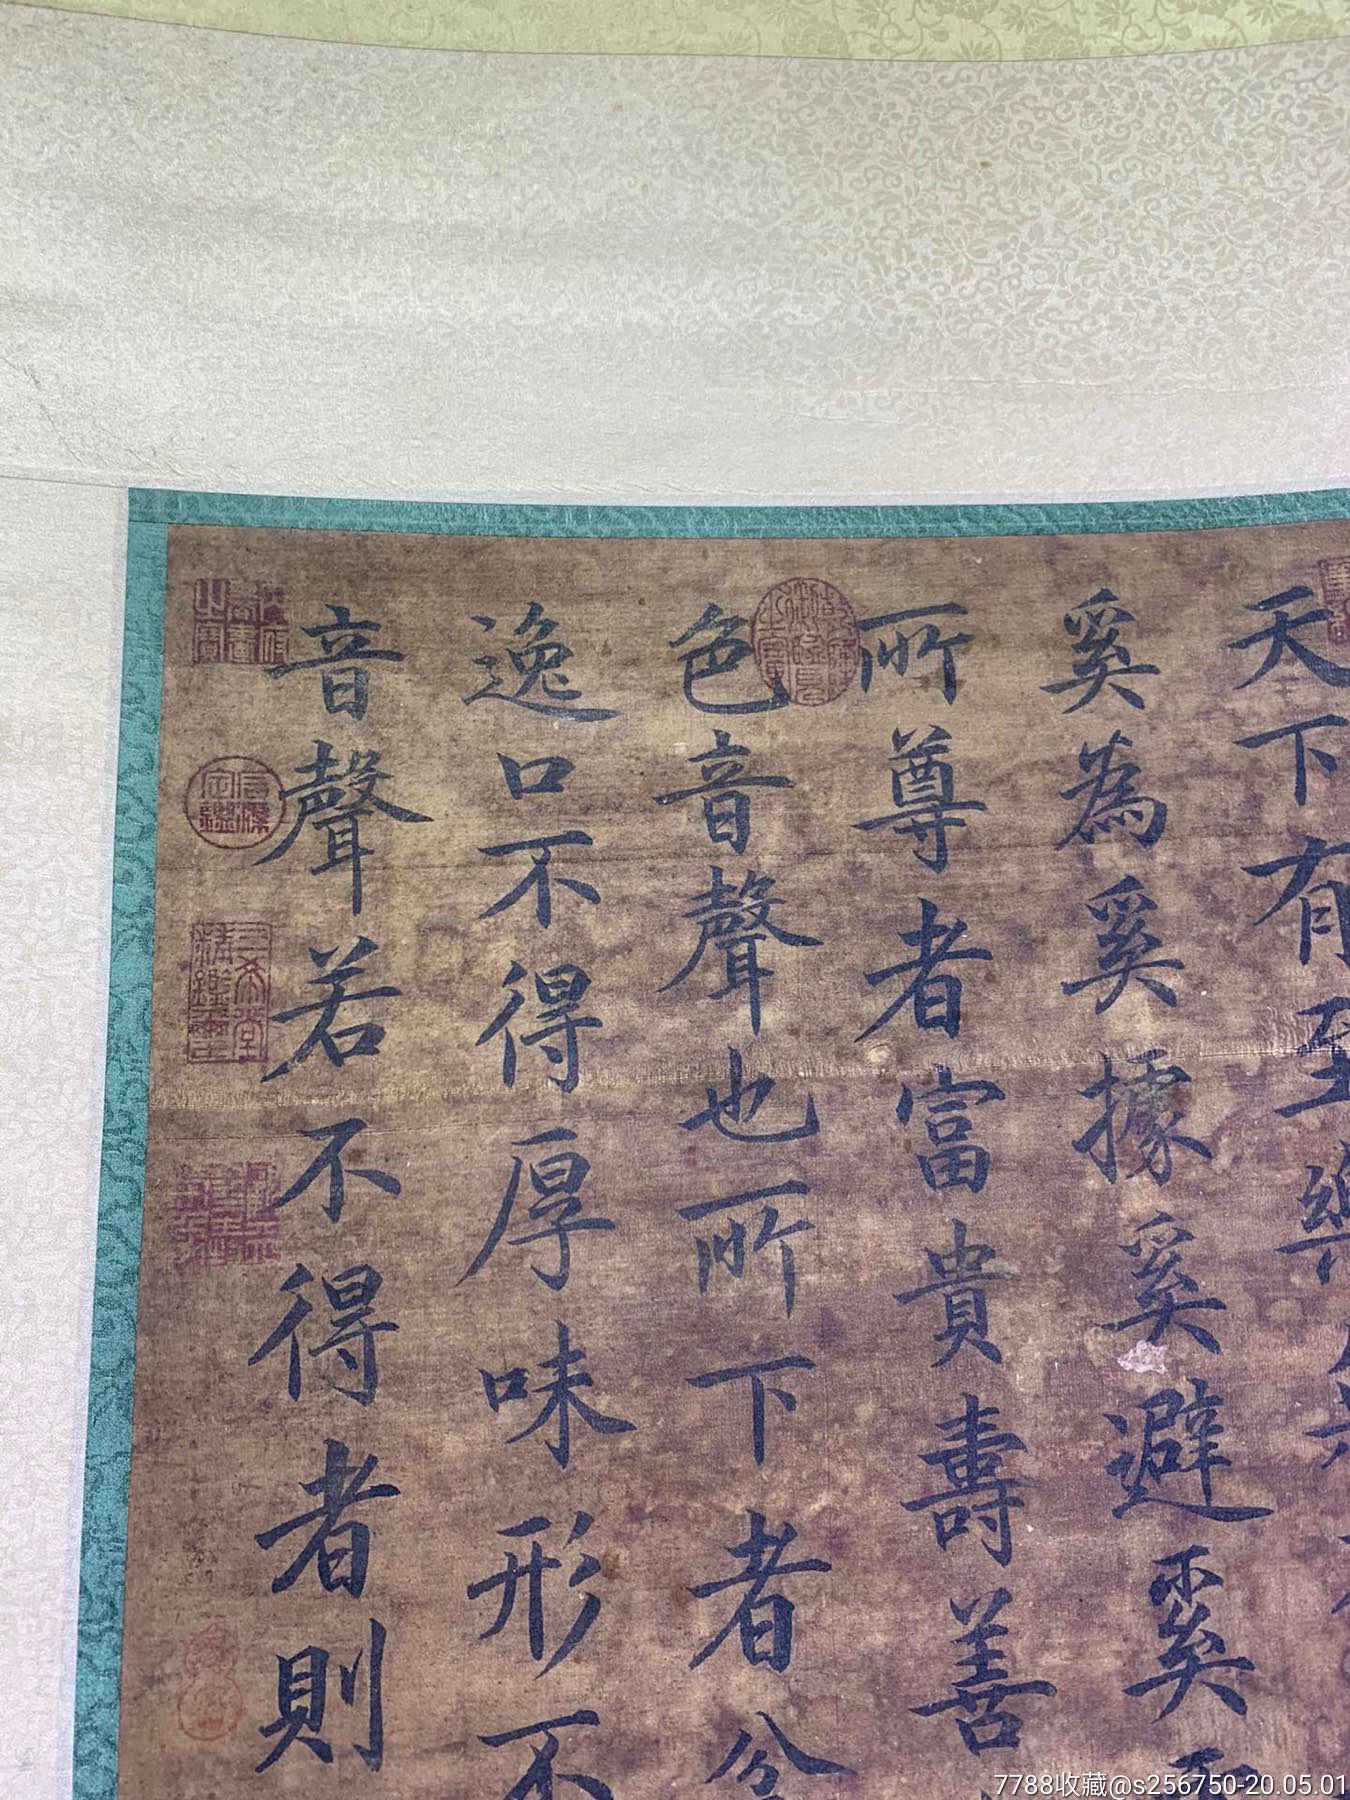 天下有至樂
奚為奚據奚避奚
所尊者富貴壽善
色音聲也所下者
逸口不得厚味形不
音聲若不得者則
三希堂精鑑璽
7788收藏@s256750-20.05.01